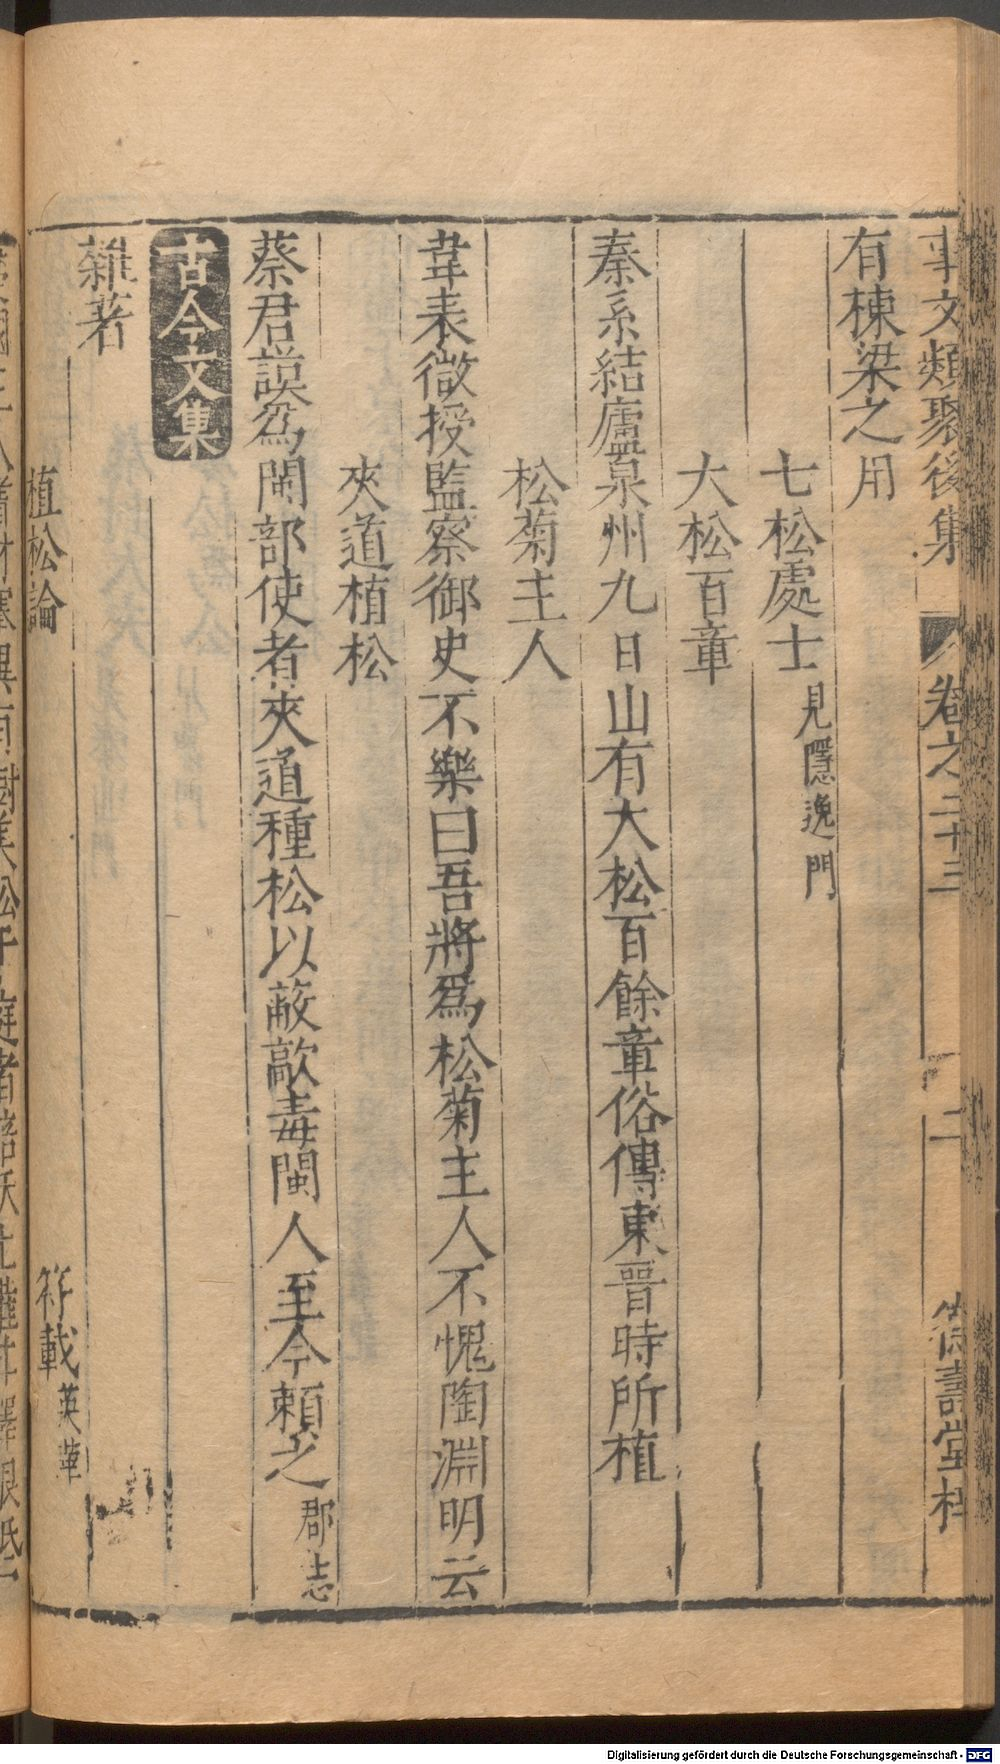 事文類聚後集 卷之二十三 二 德壽堂梓
有棟梁之用
七松處士見隱逸門
大松百章
秦系結廬泉州九日山有大松百餘章俗傳東晉時所植
松菊主人
韋表微授監察御史不樂曰吾將爲松菊主人不愧陶淵明云
夾道植松
蔡君謨爲閩部使者夾道種松以蔽歊毒閩人至今頼之郡志
古今文集
雜著
植松論 符載英華
Digitalisierung gefördert durch die Deutsche Forschungsgemeinschaft - DFG